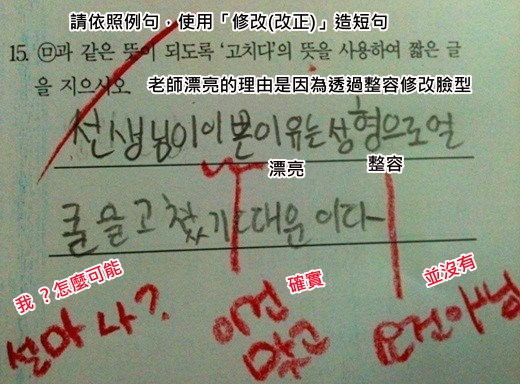 請依照例句，使用「修改(改正)」造短句
15. ㉤과 같은 뜻이 되도록 '고치다'의 뜻을 사용하여 짧은 글
을 지으시오
老師漂亮的理由是因為透過整容修改臉型
선생님이 이쁜 이유는 성형으로 얼
漂亮
整容
굴을 고쳤기 대문이다
我？怎麼可能
確實
並沒有
설마 나?
이건
맞고
요건 아님